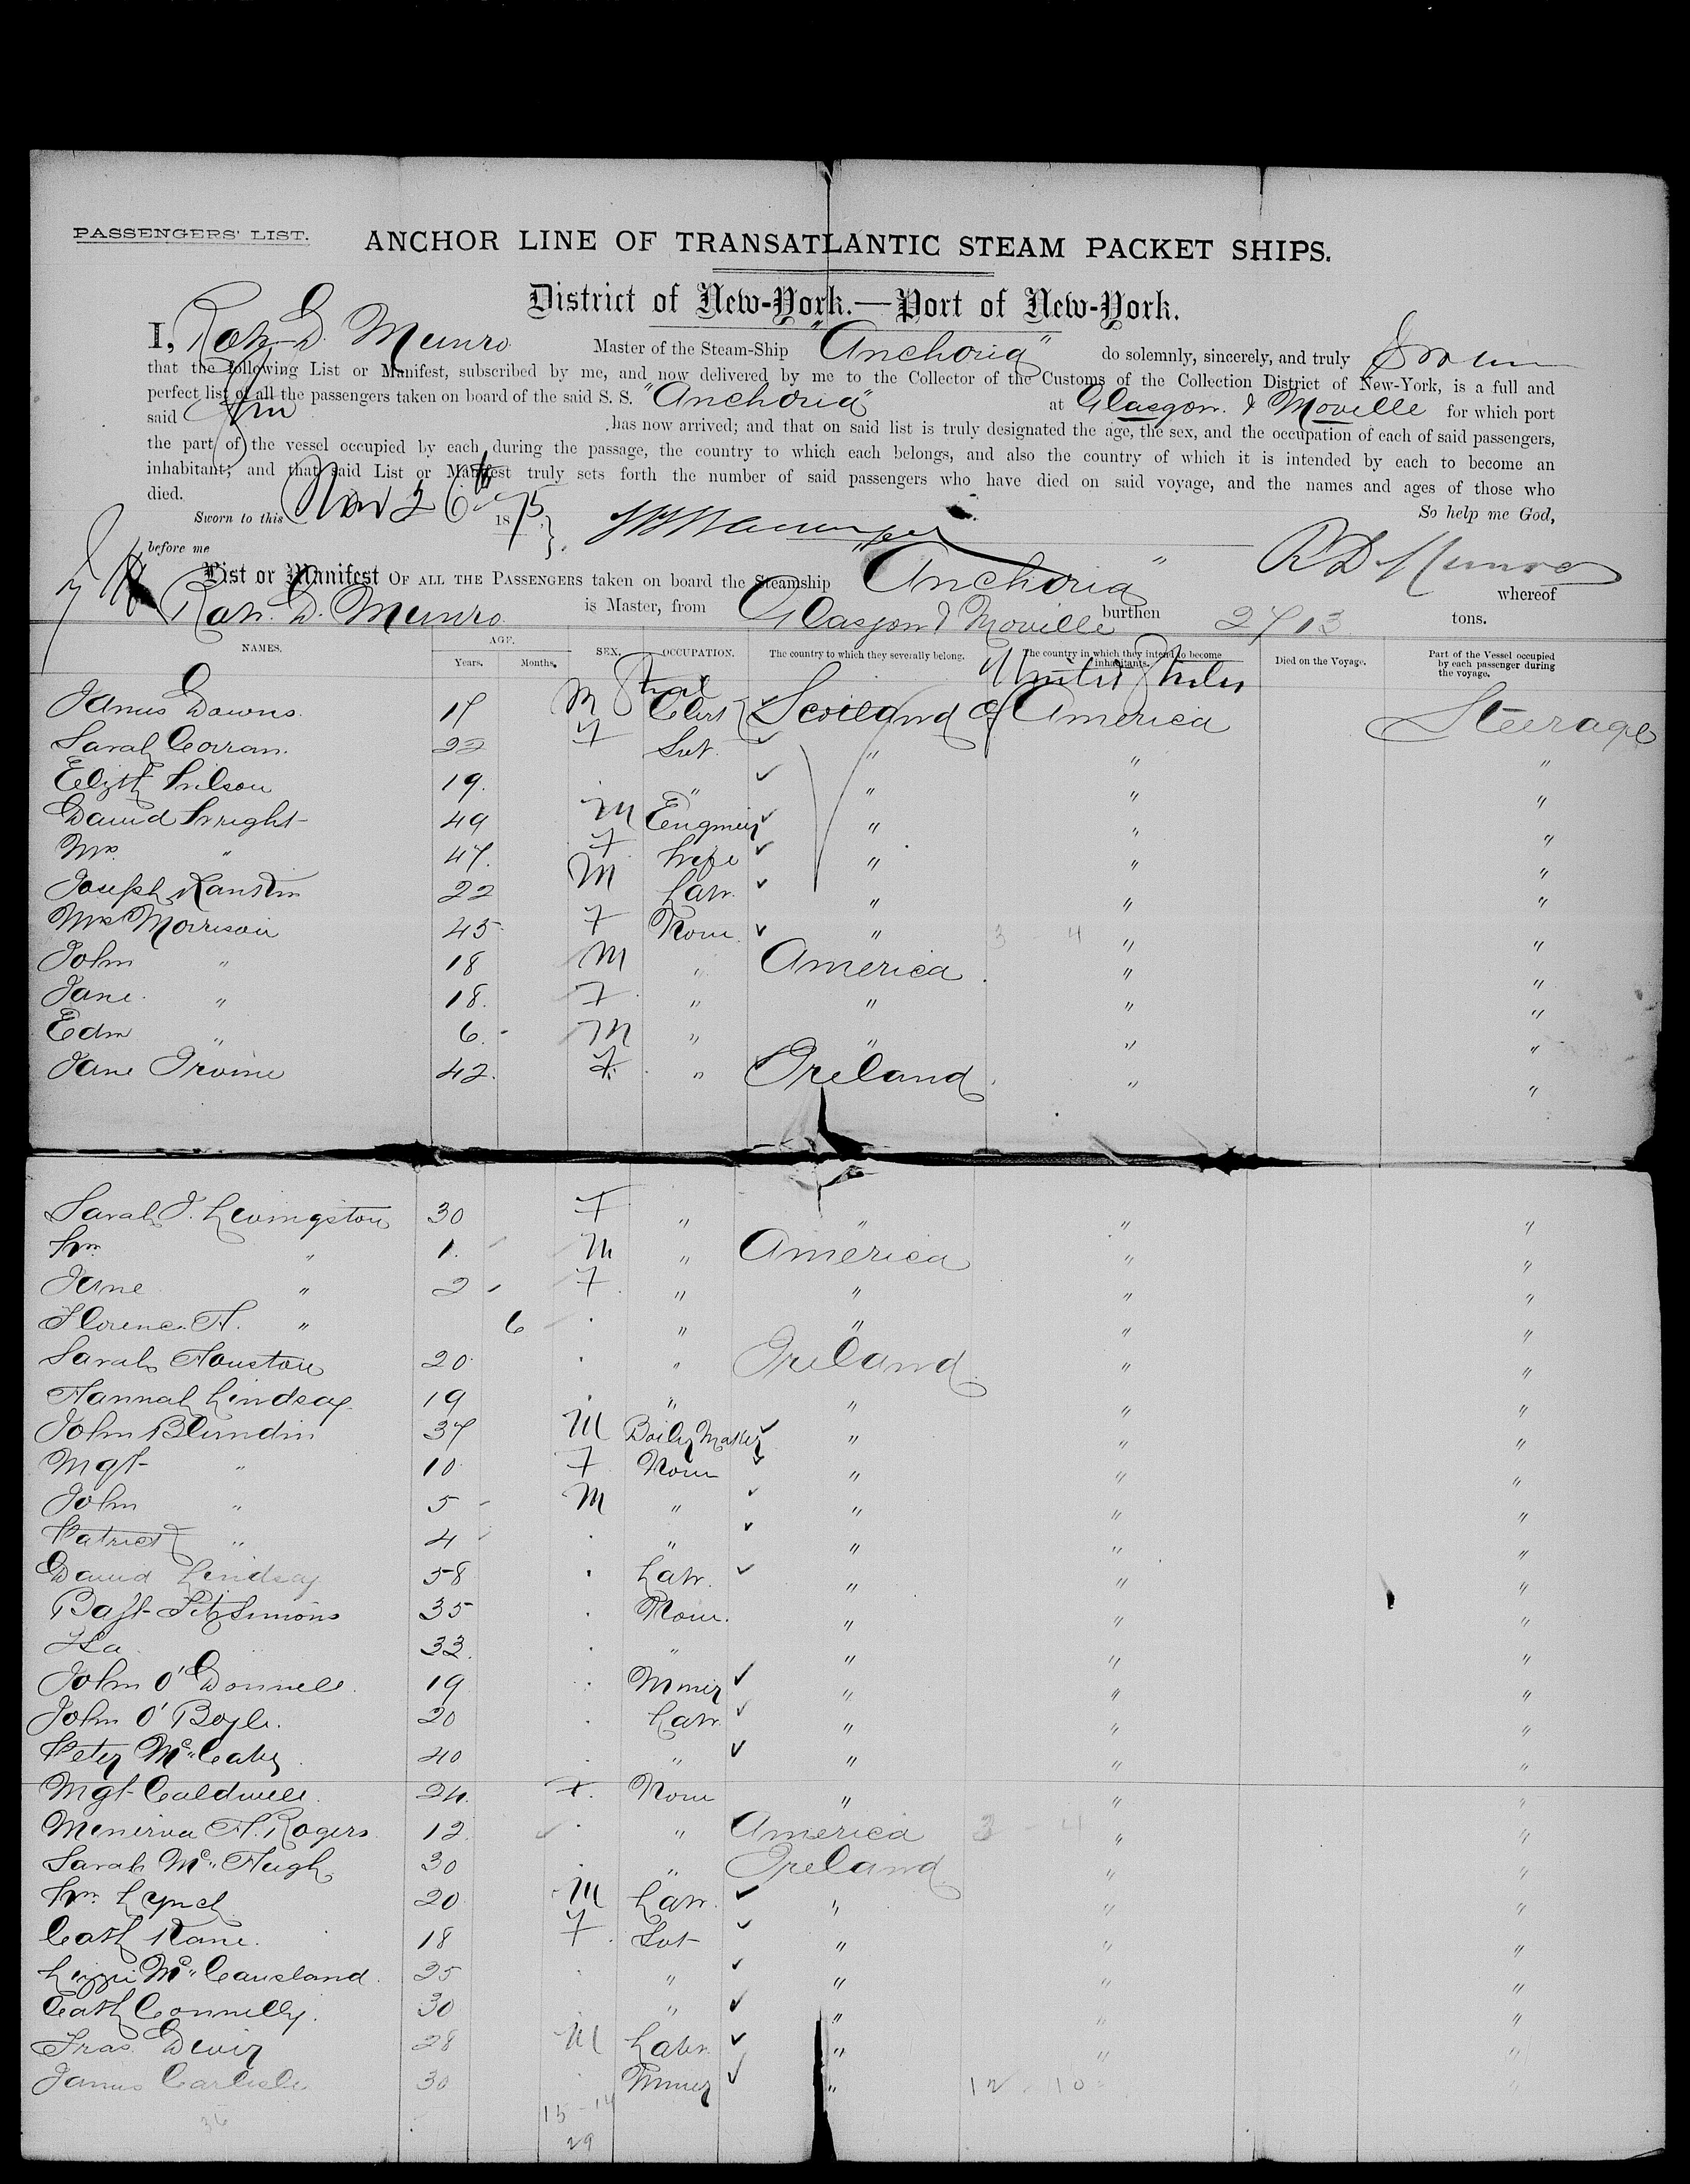 PASSENGERS' LIST.
ANCHOR LINE OF TRANSATLANTIC STEAM PACKET SHIPS.
District of New-York.—Port of New-York.
I, Robt. D. Munro Master of the Steam-Ship "Anchoria" do solemnly, sincerely, and truly Swear
that the following List or Manifest, subscribed by me, and now delivered by me to the Collector of the Customs of the Collection District of New-York, is a full and
perfect list of all the passengers taken on board of the said S. S. "Anchoria" at Glasgow & Moville for which port
said has now arrived; and that on said list is truly designated the age, the sex, and the occupation of each of said passengers,
the part of the vessel occupied by each during the passage, the country to which each belongs, and also the country of which it is intended by each to become an
inhabitant; and that said List or Manifest truly sets forth the number of said passengers who have died on said voyage, and the names and ages of those who
died. So help me God,
Sworn to this Nov 26 1875
before me R D Munro
List or Manifest OF ALL THE PASSENGERS taken on board the Steamship "Anchoria" whereof
Robt. D. Munro is Master, from Glasgow & Moville burthen 2713 tons.
NAMES. AGE. Years. Months. SEX. OCCUPATION. The country to which they severally belong. The country in which they intend to become inhabitants. Died on the Voyage. Part of the Vessel occupied by each passenger during the voyage.
James Downs 17 M Clerk Scotland United States of America Steerage
Sarah Corran 22 F Svt " " "
Elizth Wilson 19 " " " "
David Wright 49 M Engineer " " "
Mrs " 47 F Wife " " "
Joseph Rankin 22 M Labr " " "
Mrs Morrison 45 F None " 3 4 " "
John " 18 M " America " "
Jane " 18 F " " " "
Edm " 6 M " " " "
Jane Irvine 42 F " Ireland " "
Sarah J. Livingston 30 F " " " "
Wm " 1 M " America " "
Jane " 2 F " " " "
Florence A. " 6 " " " "
Sarah Houston 20 " Ireland " "
Hannah Lindsay 19 " " " "
John Blundin 37 M Boiler Maker " " "
Mgt " 10 F None " " "
John " 5 M " " " "
Patrick " 4 " " " "
David Lindsay 58 Labr. " " "
Fitzsimons 35 None " " "
33 " " " "
John O'Donnell 19 Miner " " "
John O'Boyle 20 Labr. " " "
Peter McCabe 40 " " " "
Mgt Caldwell 24 F None " " "
Minerva A. Rogers 12 " America 3 - 4 " "
Sarah McHugh 30 " Ireland " "
Wm Lynch 20 M Labr. " " "
Cath Kane 18 F Svt " " "
Lizzie McCausland 25 " " " "
Cath Connelly 30 " " " "
Fras Devir 28 M Labr " " "
James Carlisle 30 Miner " 12 - 10 "
36 15 - 14
29